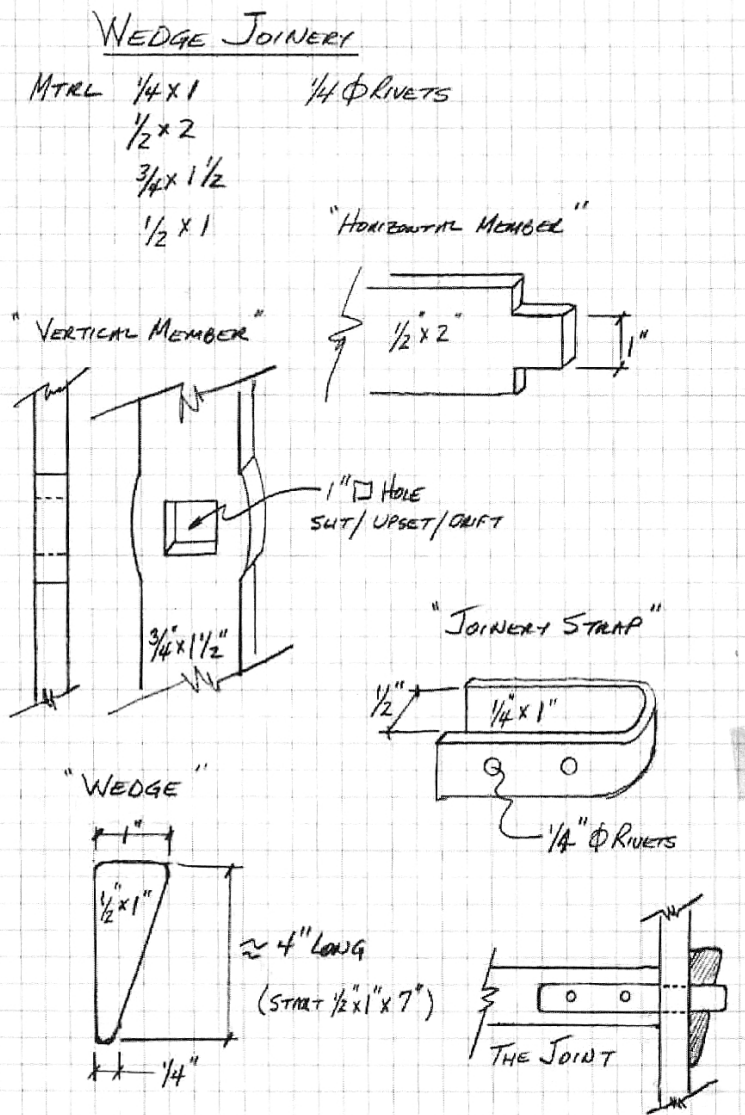 WEDGE JOINERY
MTRL 1/4 x 1 1/4 Φ RIVETS
1/2 x 2
3/4 x 1 1/2
1/2 x 1
"HORIZONTAL MEMBER"
1/2" x 2"
1"
"VERTICAL MEMBER"
1" □ HOLE
SLIT/UPSET/DRIFT
3/4" x 1 1/2"
"JOINERY STRAP"
1/2"
1/4" x 1"
1/4" Φ RIVETS
"WEDGE"
1"
1/2" x 1"
≈ 4" LONG
(START 1/2" x 1" x 7")
1/4"
THE JOINT